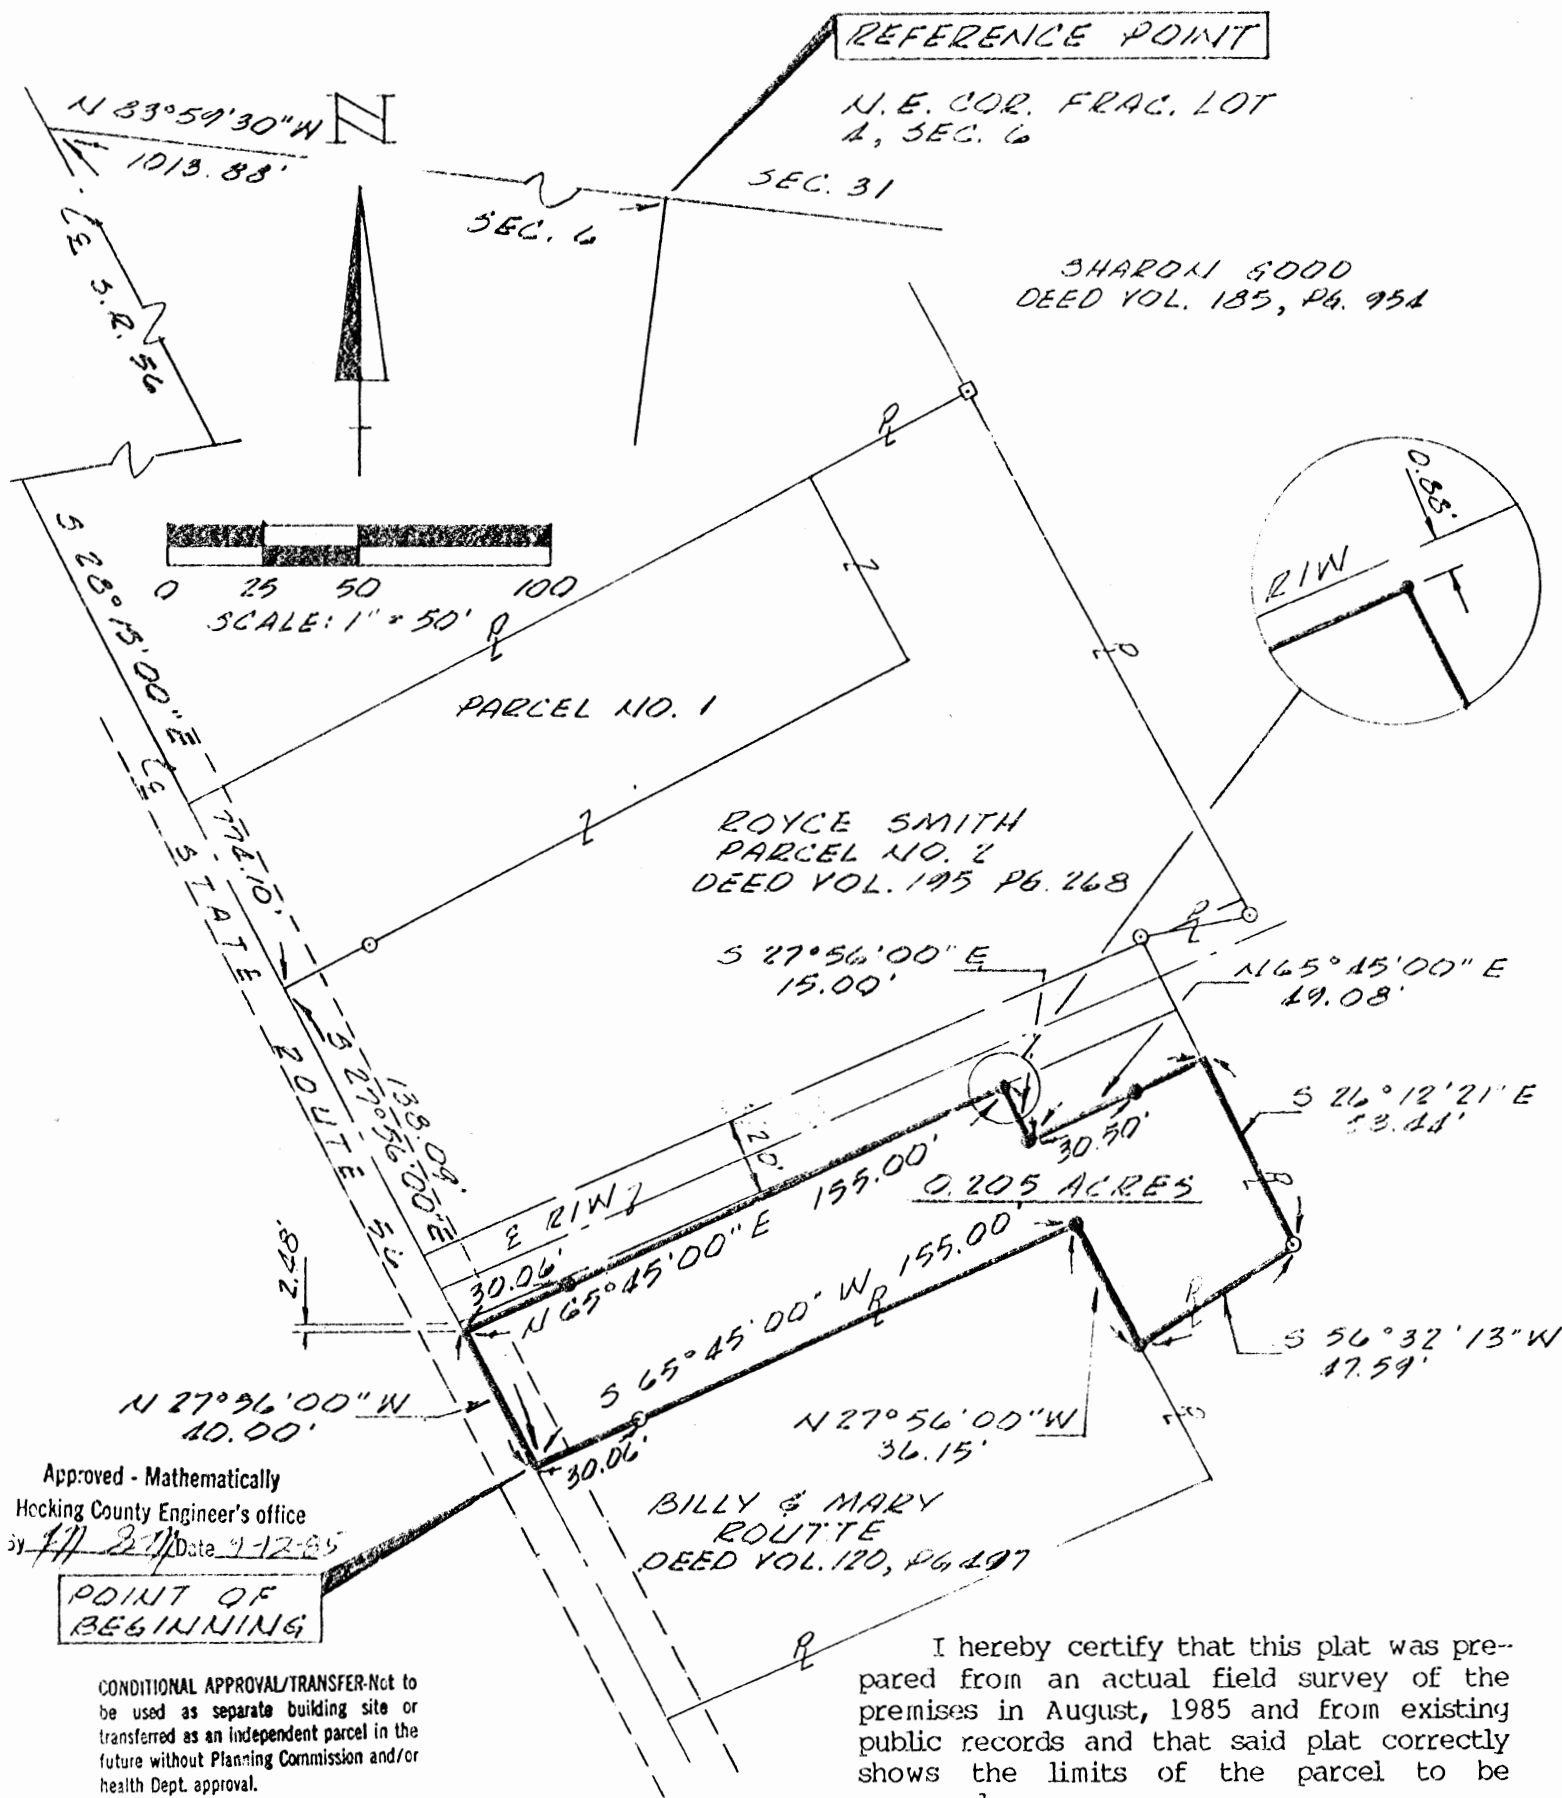 REFERENCE POINT
N.E. COR. FRAC. LOT
4, SEC. 6
N 83°59'30" W
1013.88'
N
SEC. 31
SEC. 6
℄ S.R. 56
SHARON GOOD
DEED VOL. 185, PG. 954
0.88'
R/W
S 28°15'00" E
0 25 50 100
SCALE: 1" = 50'
PARCEL NO. 1
774.10'
℄ STATE ROUTE 56
ROYCE SMITH
PARCEL NO. 2
DEED VOL. 195 PG. 268
S 27°56'00" E
15.00'
N 65°45'00" E
49.08'
138.09'
S 27°56'00" E
S 26°12'21" E
53.44'
20'
℄ R/W
155.00'
30.50'
0.205 ACRES
2.48'
30.06'
N 65°45'00" E
S 65°45'00" W 155.00'
S 56°32'13" W
47.59'
N 27°56'00" W
40.00'
N 27°56'00" W
36.15'
30.06'
Approved - Mathematically
Hocking County Engineer's office
By Date 9-12-85
BILLY & MARY
ROUTTE
DEED VOL. 120, PG 497
POINT OF
BEGINNING
CONDITIONAL APPROVAL/TRANSFER-Not to
be used as separate building site or
transferred as an independent parcel in the
future without Planning Commission and/or
health Dept. approval.
I hereby certify that this plat was pre-
pared from an actual field survey of the
premises in August, 1985 and from existing
public records and that said plat correctly
shows the limits of the parcel to be